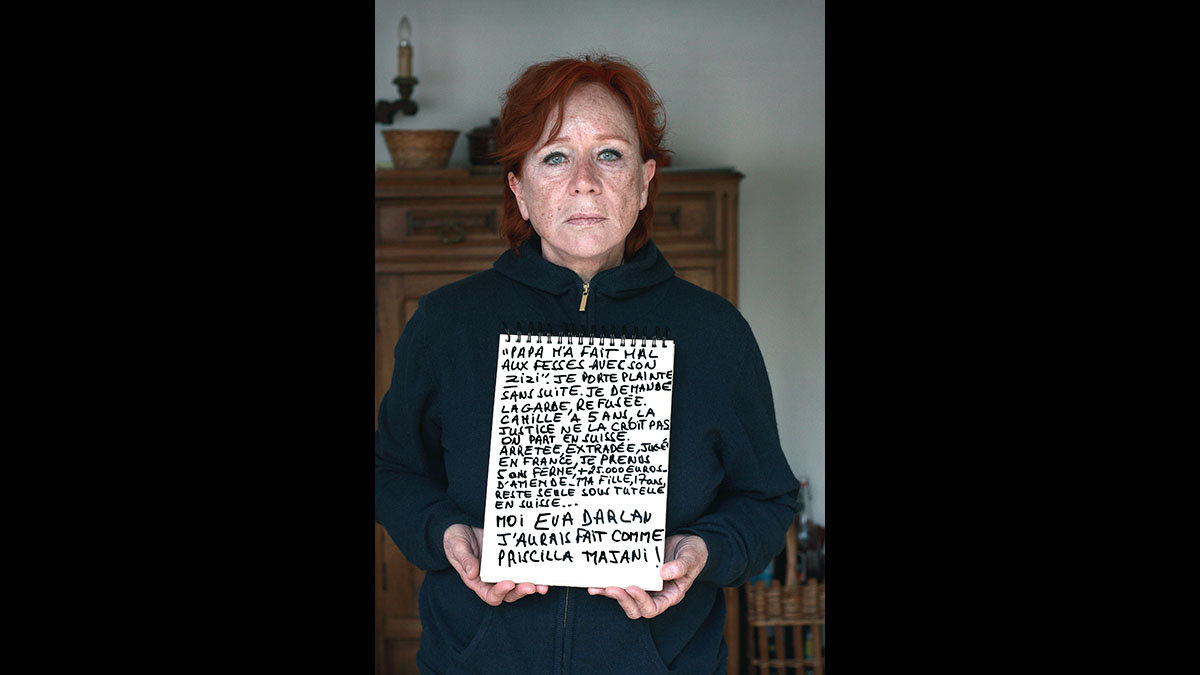 "PAPA M'A FAIT MAL
AUX FESSES AVEC SON
ZIZI". JE PORTE PLAINTE
SANS SUITE. JE DEMANDE
LA GARDE, REFUSÉE.
CAMILLE A 5 ANS, LA
JUSTICE NE LA CROIT PAS
ON PART EN SUISSE.
ARRETÉE, EXTRADÉE, JUGÉE
EN FRANCE, JE PRENDS
5 ans FERME, + 25.000 EUROS
D'AMENDE. MA FILLE, 17 ans,
RESTE SEULE SOUS TUTELLE
EN SUISSE...
MOI EVA DARLAN
J'AURAIS FAIT COMME
PRISCILLA MAJANI !